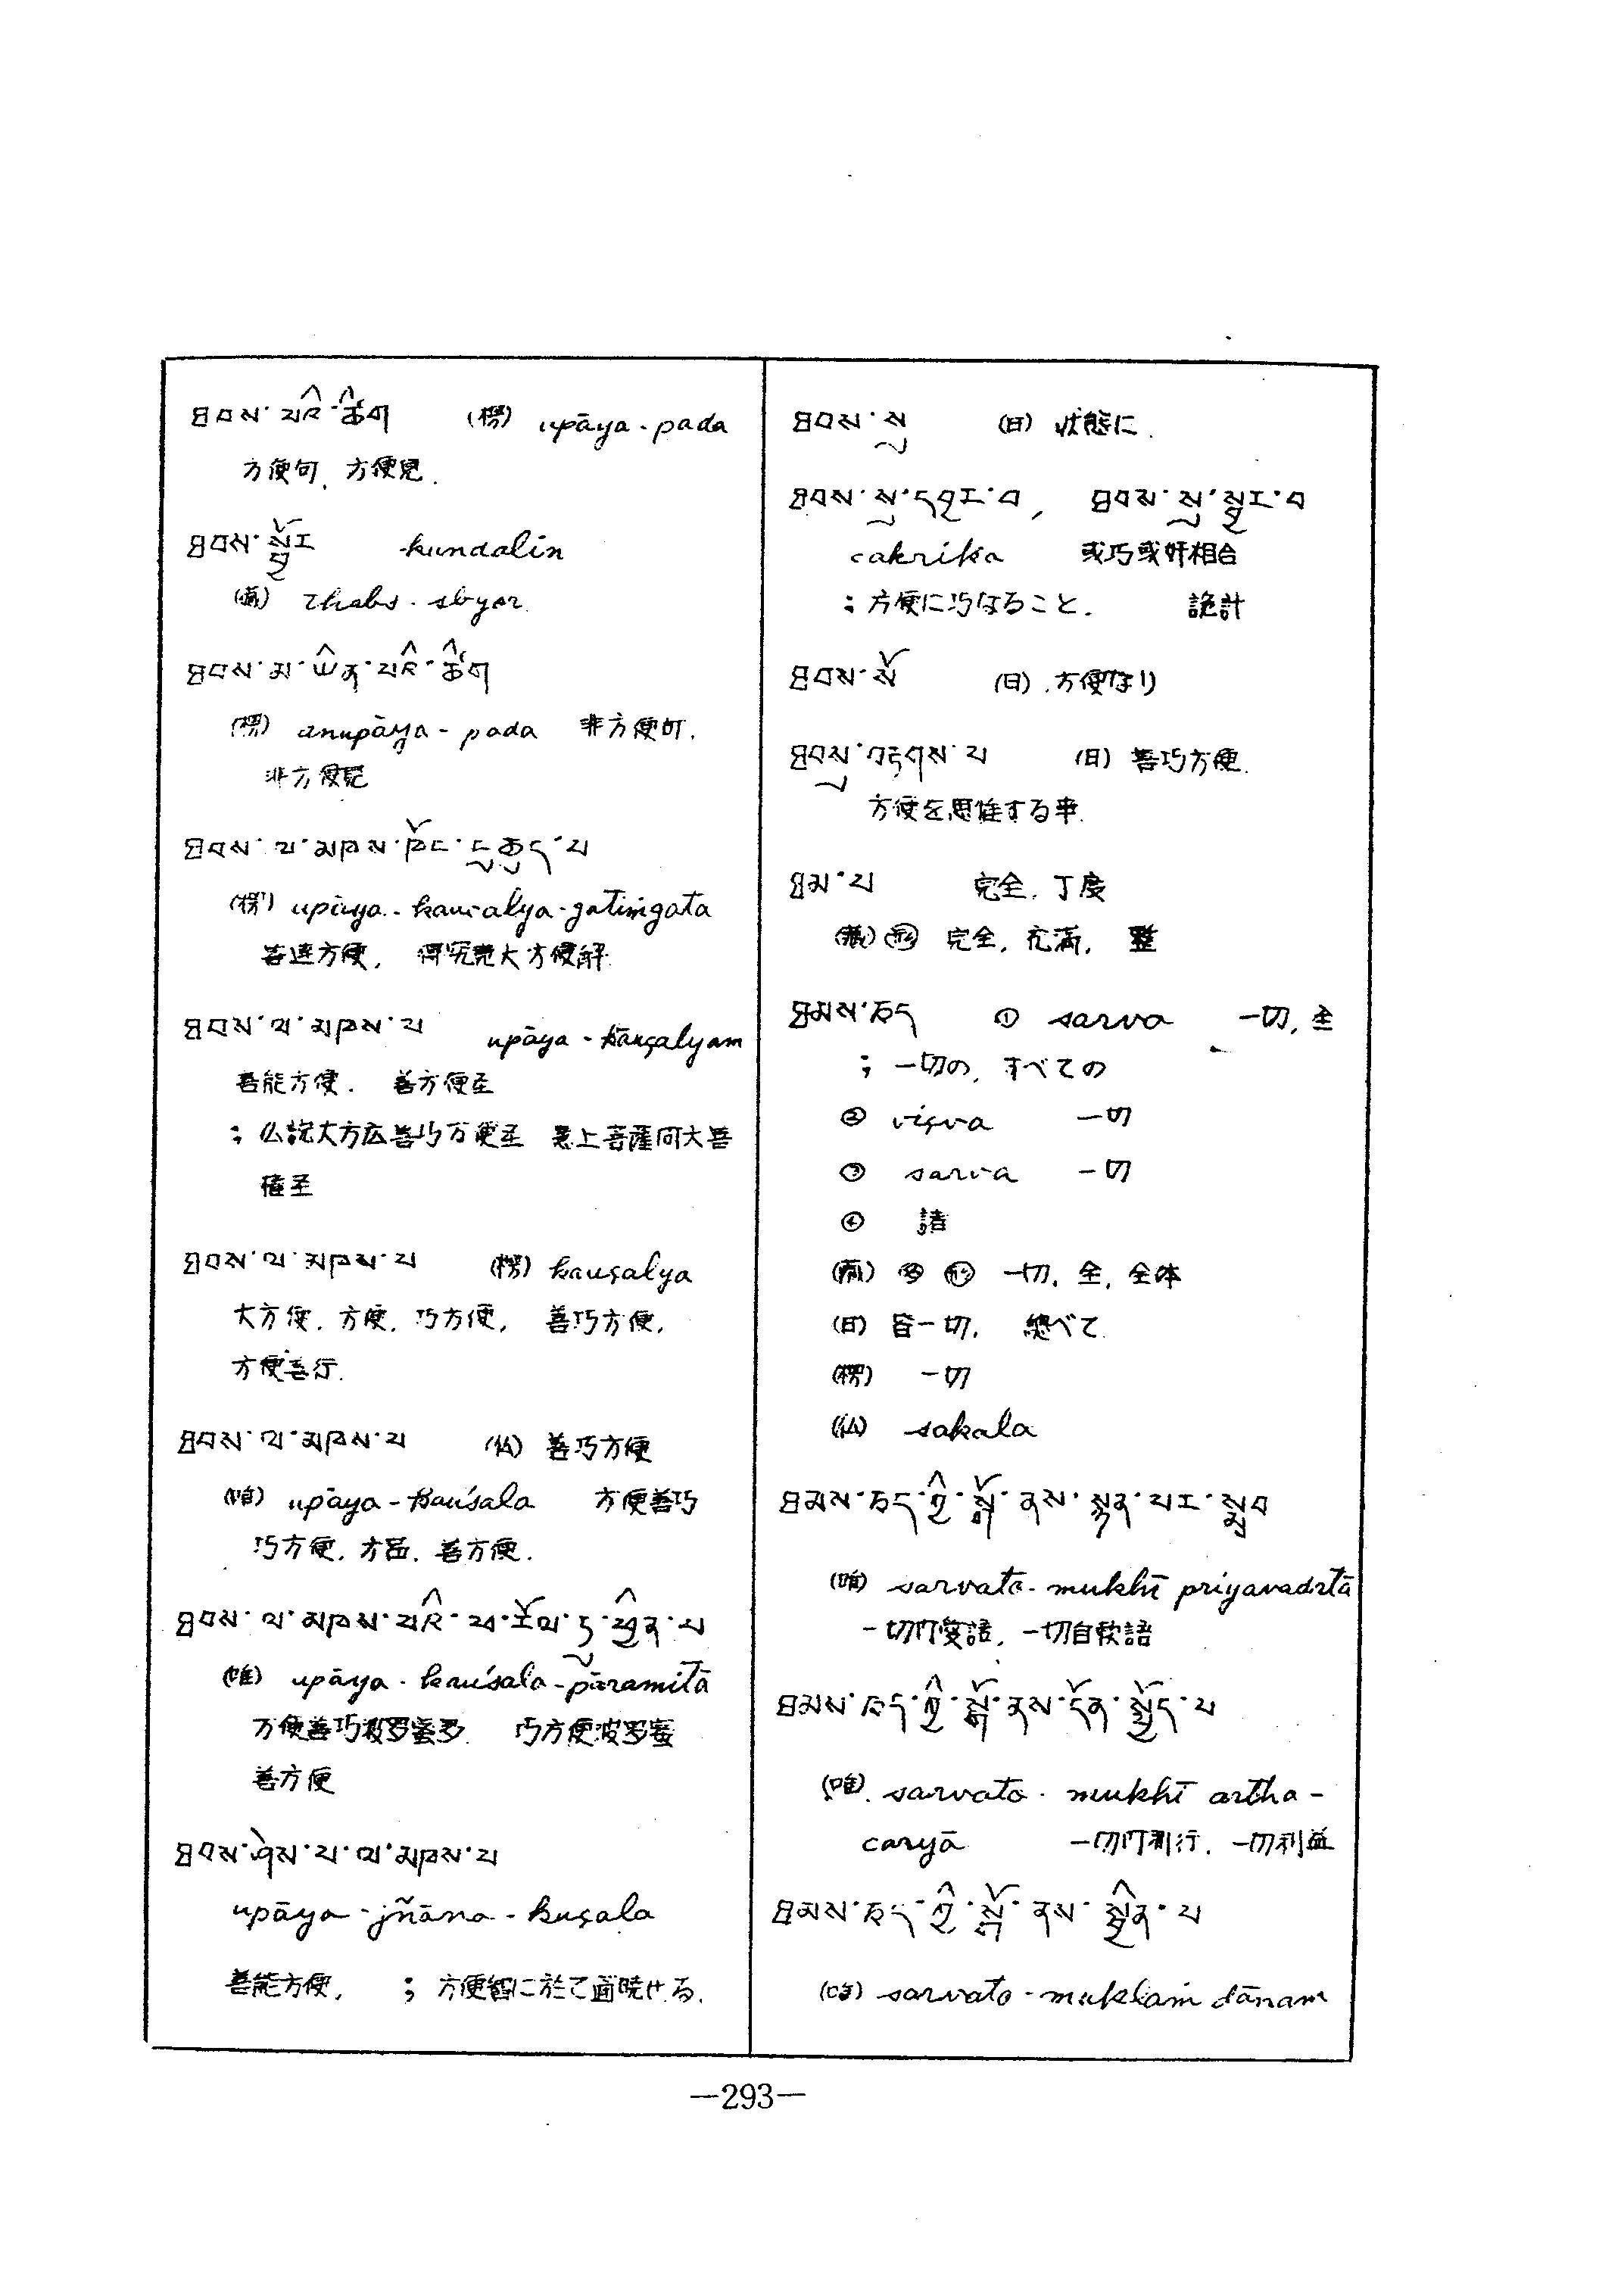 ཐབས་པའི་ཚིག (楞) upāya-pada
方便句, 方便見.
ཐབས་སྦྱོར kundalin
thabs-sbyor.
ཐབས་མ་ཡིན་པའི་ཚིག
(楞) anupāya-pada 非方便句.
非方便見
ཐབས་ལ་མཁས་ཁོང་དུ་ཆུད་པ
(楞) upāya-kauśalya-gatiṃgata
善達方便, 得究竟大方便解
ཐབས་ལ་མཁས་པ upāya-kāuçalyam
善能方便. 善方便至
; 仏説大方広善巧方便至 慧上菩薩問大善
権至
ཐབས་ལ་མཁས་པ (楞) kauçalya
大方便, 方便, 巧方便, 善巧方便,
方便善行.
ཐབས་ལ་མཁས་པ (仏) 善巧方便
(唯) upāya-kauśala 方便善巧
巧方便, 善方便.
ཐབས་ལ་མཁས་པའི་ཕ་རོལ་ཏུ་ཕྱིན་པ
(唯) upāya-kauśala-pāramitā
方便善巧波罗蜜多 巧方便波罗蜜
善方便
ཐབས་ཤེས་པ་ལ་མཁས་པ
upāya-jñāna-kuçala
善能方便, ; 方便智に於て通暁せる.
ཐབས་སུ (日) 状態に.
ཐབས་སུ་དབྱར་བ, ཐབས་སུ་སྦྱར་བ
cakrika 或巧或奸相合
; 方便に巧なること. 詭計
ཐབས་སོ (日) 方便なり
ཐབསུ་བརྟགས་པ (日) 善巧方便.
方便を思惟する事.
ཐམ་པ 完全, 丁度
(蔵) ㊒ 完全, 充満, 整
ཐམས་ཅད ① sarva 一切, 全
; 一切の, すべての
② viçva 一切
③ sarva 一切
④ 諸
一切, 全, 全体
(日) 皆一切, 總べて.
(楞) 一切
(仏) sakala
ཐམས་ཅད་ཀྱི་སྒོ་ནས་སྙན་པར་སྨྲ་བ
(唯) sarvato-mukhī priyavaditā
一切門愛語, 一切自軟語
ཐམས་ཅད་ཀྱི་སྒོ་ནས་དོན་སྤྱོད་པ
(唯) sarvato-mukhī artha-
caryā 一切門利行, 一切利益
ཐམས་ཅད་ཀྱི་སྒོ་ནས་སྦྱིན་པ
(唯) sarvato-mukhaṁ dānam
—293—